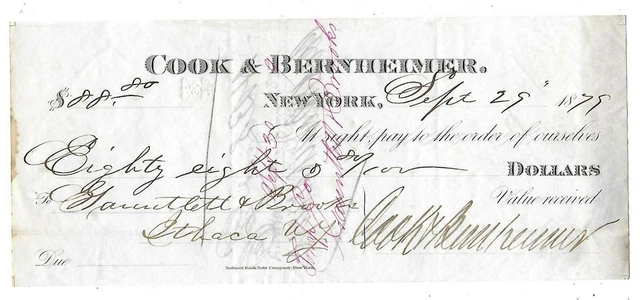 COOK & BERNHEIMER.
$88.80 NEW YORK, Sept 29" 1879
At sight, pay to the order of ourselves
Eighty eight & 80/100 DOLLARS
To Gauntlett & Brooks Value received
Ithaca N.Y. Cook & Bernheimer
Due
National Bank Note Company, New York.
Gauntlett & Brooks